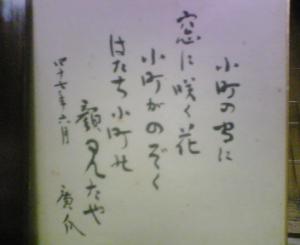 小町の に
窓に咲く花
小町がのぞく
はたち小町の
顔見たや
四十七年六月